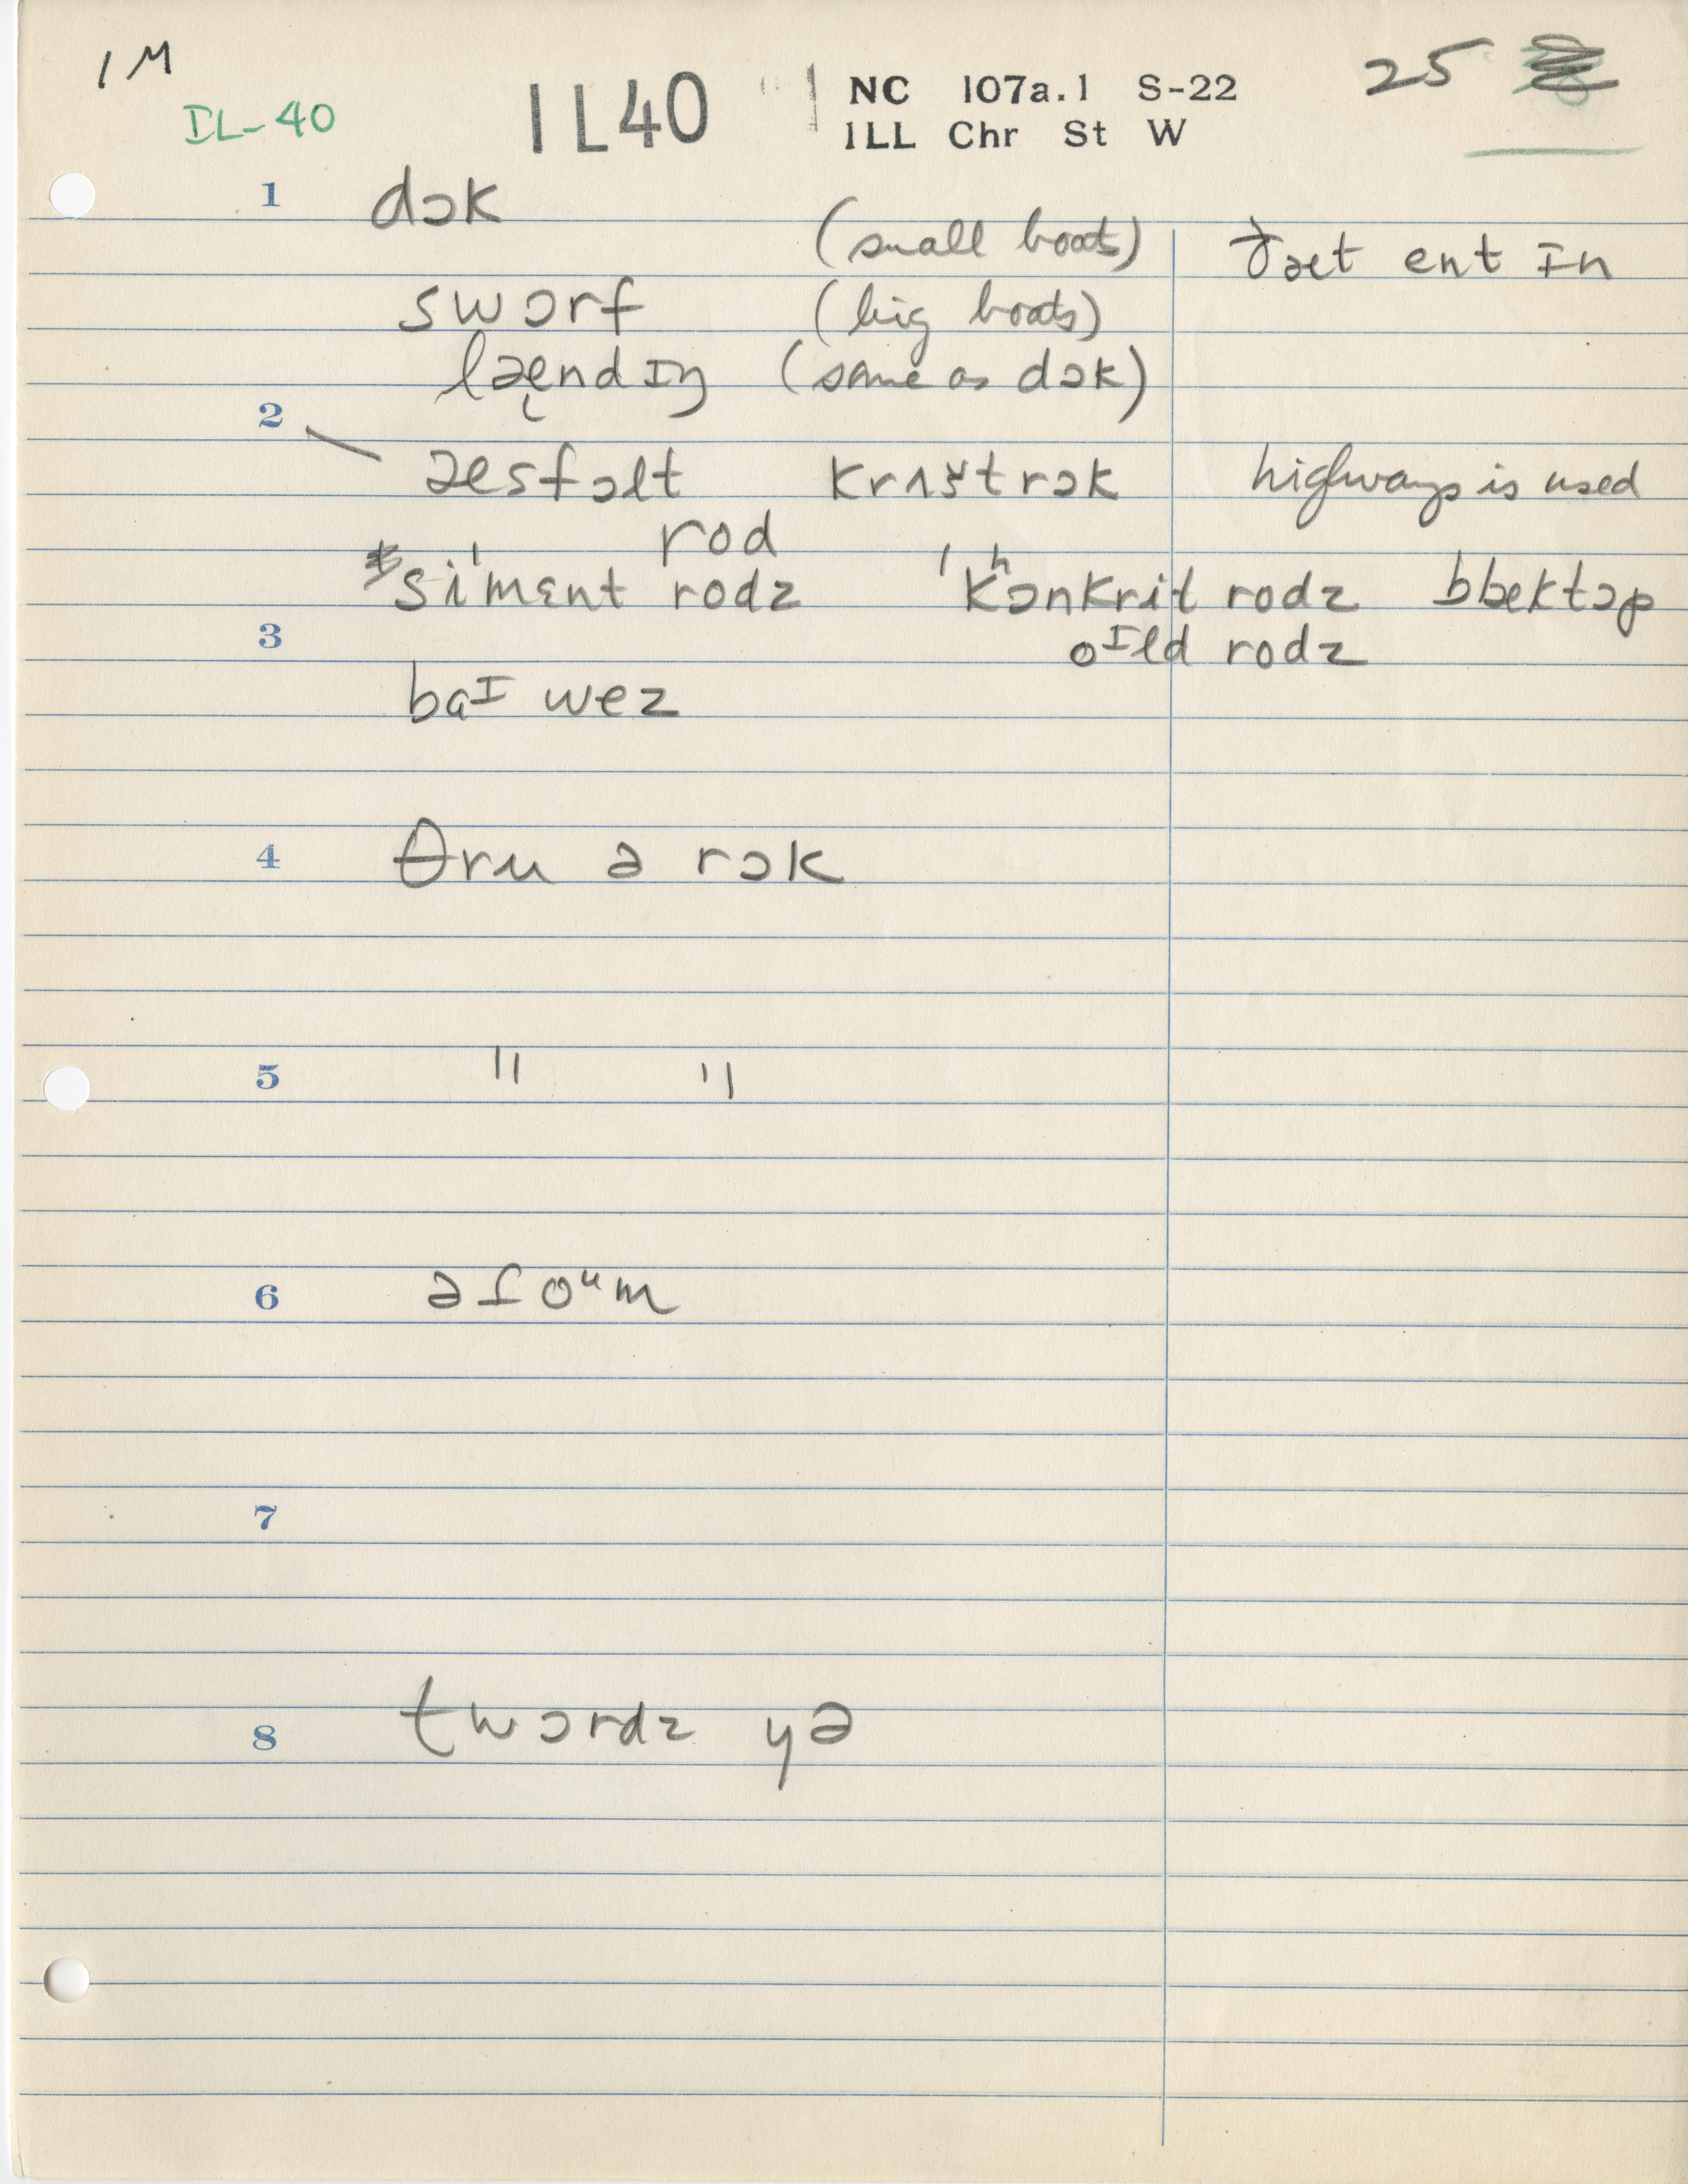 1 M
IL-40 IL40 NC 107a.1 S-22 25
ILL Chr St W
1 dɔk
(small boats) ðæt ent ɪn
swɔrf (big boats)
lændɪŋ (same as dɔk)
2
æsfɔlt krʌštrɔk highways is used
rod
si'mɛnt rodz 'kʰɔnkrit rodz blæktɔp
3 oᴵld rodz
baᴵ wez
4 θru ə rɔk
5 " "
6 əf oᵘm
7
8 twɔrdz yə